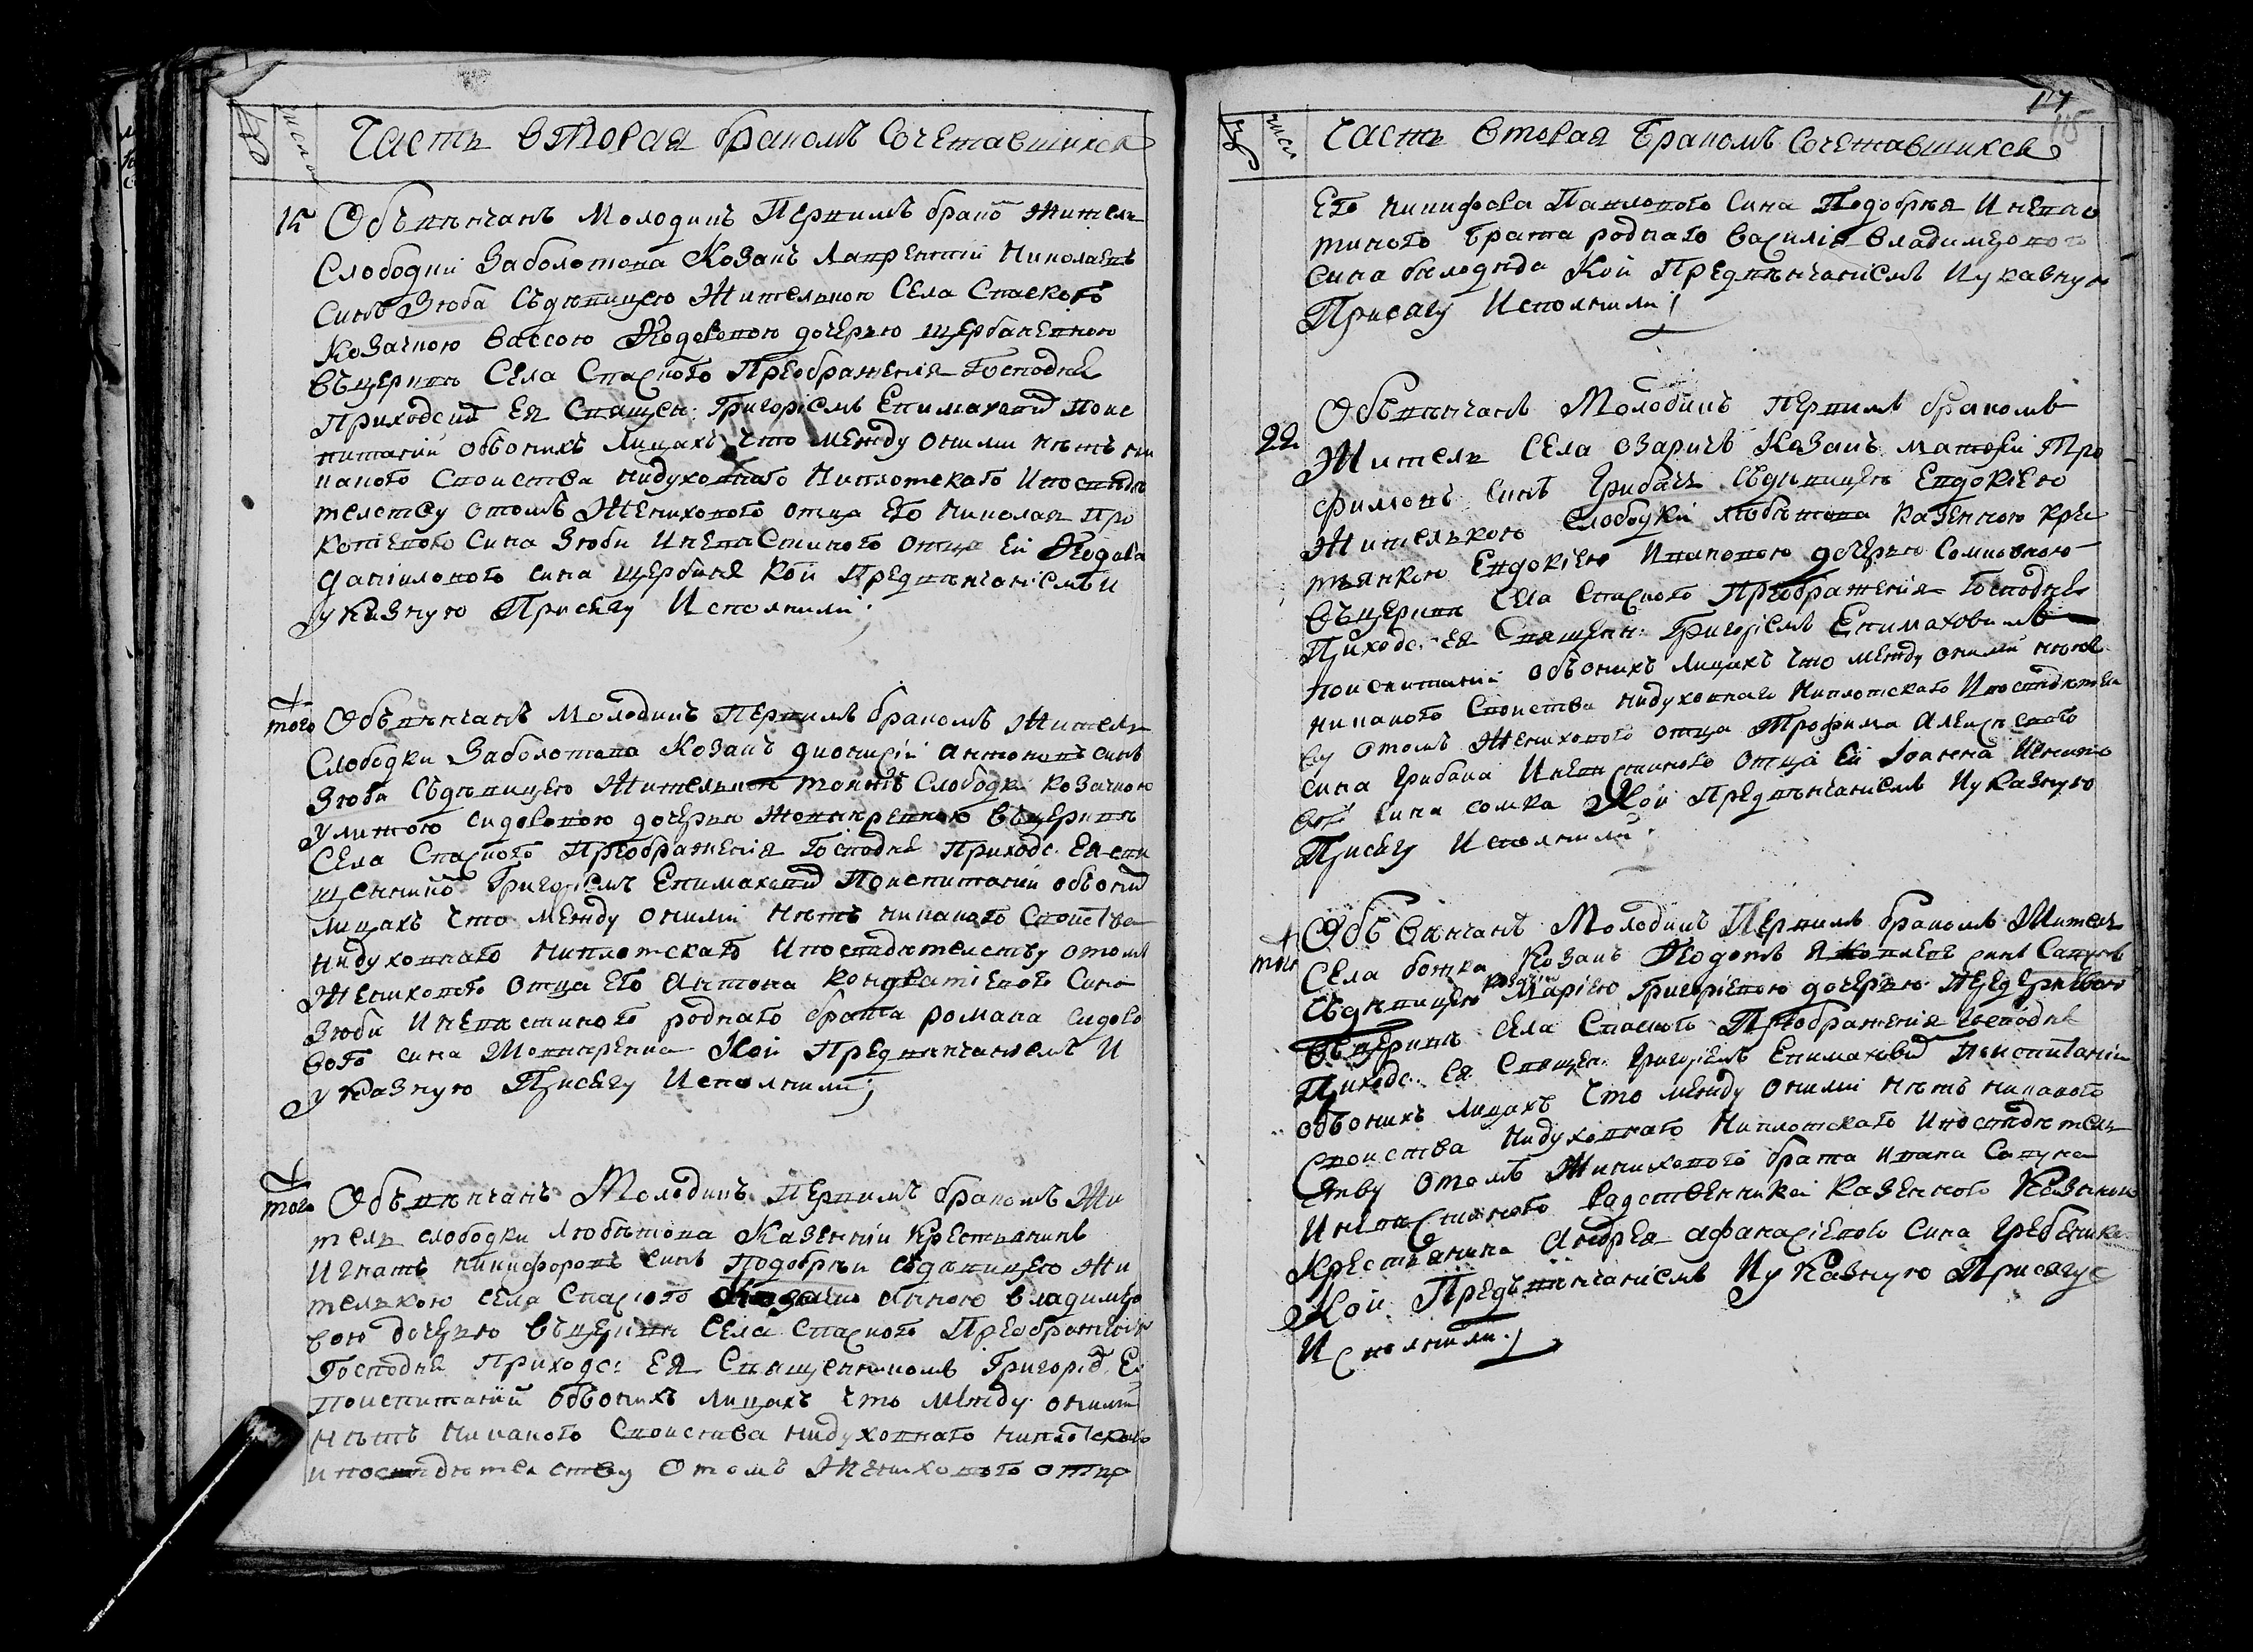 число
Часть вторая бракомъ сочетавшихся
15 Объвѣнчанъ молодикъ первимъ брако жителъ
слободки Заболотова козакъ Лаврентий Николаевъ
синъ Зюба съдѣвицею жителькою села Спаского
козачкою Вассою Ѳедоровою дочерью Щербаневною
въцерквѣ села Спаского Преображения Господня
приходской ея священ: Григориемъ Епимаховим поис
питании обоонихъ лицахъ что между оними нѣтъ ни
какого своиства нидуховнаго ниплотскаго ипосвидѣ
телству отомъ женихового отца его Николая Про
копиевого сина Зюби иневѣстиного отца ей Ѳедора
Данииловаго сина Щербаня кои предвѣнчаниемъ и
указную присягу исполнили;
того Объвѣнчанъ молодикъ первимъ бракомъ жителъ
слободки Заболотова козакъ Дионисий Антоновъ синъ
Зюба съдѣвицею жителькою тоижъ слободки козачкою
Улитою Сидоровою дочерью въцерквѣ
села Спаского Преображения Господня приходс: ея свя
щенникомъ Григориемъ Епимаховим поиспитании обоонихъ
лицахъ что между оними нѣтъ никакого своиства
нидуховнаго ниплотскаго ипосвидѣтелству отомъ
женихового отца его Антона Кондратиевого сина
Зюби иневѣстиного роднаго брата Романа Сидоро
вого сина кои предвѣнчаниемъ и
указную присягу исполнили;
того Объвѣнчанъ молодикъ первимъ бракомъ жи
тель слободки Любѣтова казенний крестьянинъ
Игнатъ Никифоровъ синъ Подобрѣи съдѣвицею жи
телькою села Спаского Владимѣро
вою дочерью въцерквѣ села Спаского Преображения
Господня приходс: ея священникомъ Григорием Еп
поиспитании обоонихъ лицахъ что между оними
нѣтъ никакого своиства нидуховнаго ниплотскаго
ипосвидѣтелству отомъ женихового отца
117
115
число
Часть вторая бракомъ сочетавшихся
его Никифора Павлового сина Подобрѣя иневѣс
тиного брата роднаго Василия Владимѣрового
сина Билодида кои предвѣнчаниемъ иуказную
присягу исполнили;
Объвѣнчанъ молодикъ первимъ бракомъ
22 жителъ села Озаричъ козакъ Матфеи Тро
фимовъ синъ Грибачъ съдѣвицею Евдокиею
жителькою слободки Любѣтова казенною крес
тьянкою Евдокиею Ивановою дочерью Сомковною
въцерквѣ села Спаского Преображения Господня
приходс: ея священн: Григориемъ Епимаховимъ
поиспитании обоонихъ лицахъ что между оними нѣтъ
никакого своиства нидуховнаго ниплотскаго ипосвидѣтел
ву отомъ женихового отца Трофима Алексѣевого
сина Грибача иневѣстиного отца ей Иоанна
сина Сомка кои предвѣнчаниемъ иуказную
присягу исполнили;
того Объвѣнчанъ молодикъ первимъ бракомъ жителъ
села Божка козакъ Ѳедотъ Яковлевъ синъ Сапунъ
съдѣвицею Мариею Григориевою дочерью
въцерквѣ села Спаского Преображения Господня
приходс: ея священ: Григориемъ Епимаховим поиспитании
обоонихъ лицахъ что между оними нѣтъ никакого
своиства нидуховнаго ниплотскаго ипосвидѣтель
ству отомъ женихового брата Ивана Сапуна
иневѣстиного родственника казенного
крестьянина Андрея Афанасиевого сина Гребеника
кои предъвѣнчаниемъ иуказную присягу
исполнили;